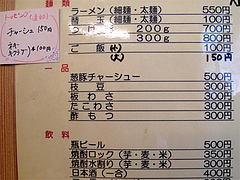 トッピング
チャーシュ 150円
キクラゲ ¥100円
麺類
ラーメン(細麺・太麺) 550円
替玉(細麺・太麺) 100円
つけ麺 200g 700円
300g 800円
ご飯 (小) 100円
(大) 150円
一品
葱豚チャーシュー
枝豆
板わさ
たこわさ
酢もつ
飲料
瓶ビール 500円
焼酎ロック(芋・麦・米) 350円
焼酎水割り(芋・麦・米) 350円
日本酒(一合)